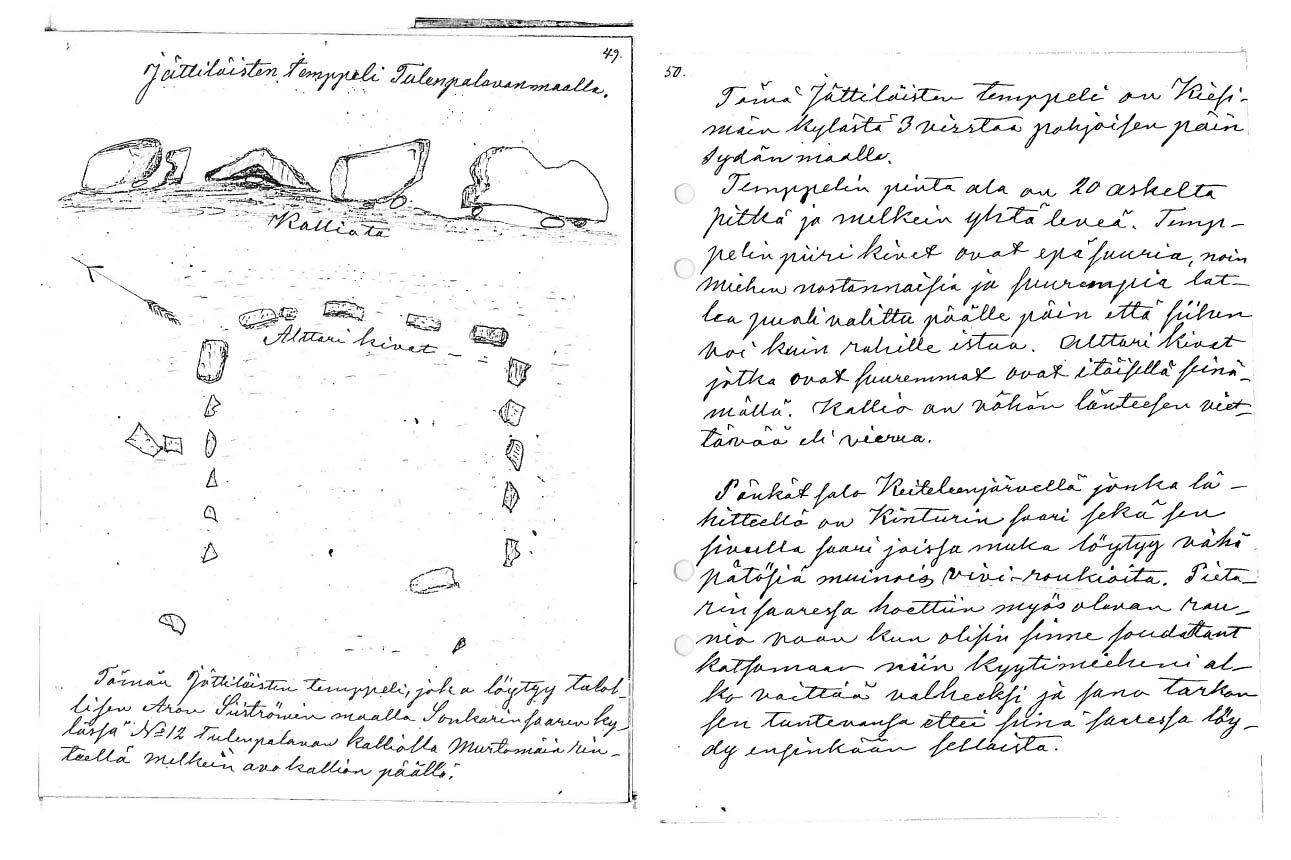 49.
Jättiläisten temppeli Tulenpalavanmaalla.
Kalliota
Alttari kivet
Tämän Jättiläisten temppeli, joka löytyy talol-
lisen Aron Siiströmin maalla Sonkarinsaaren ky-
lässä No 12 Tulenpalavan kalliolla Murtomäin rin-
teellä melkein avokallion päällä.
50.
Tämä Jättiläisten temppeli on Kiesi-
män kylästä 3 virstaa pohjoisen päin
sydän maalla.
Temppelin pinta ala on 20 askelta
pitkä ja melkein yhtä leveä. Temp-
pelin piiri kivet ovat epäsuuria, noin
miehen nostannaisia ja suurempia lat-
tea puoli valittu päälle päin että siihen
voi kuin rahille istua. Alttari kivet
jotka ovat suuremmat ovat itäisellä seinä-
mällä. Kallio on vähän länteesen viet-
tävää eli vierua.
salo Keiteleenjärvellä jonka lä-
hitteellä on Kinturin saari sekä sen
sivulla saari joissa muka löytyy vähä
pätösiä muinois vivi-roukioita. Pieta-
rinsaaressa hoettiin myös olevan rau-
nio vaan kun olisin sinne soudattant
katsomaan niin kyytimieheni al-
ko väittää valheeksi ja sano tarkon
sen tuntevansa ettei siinä saaressa löy-
dy enginkään sellaista.